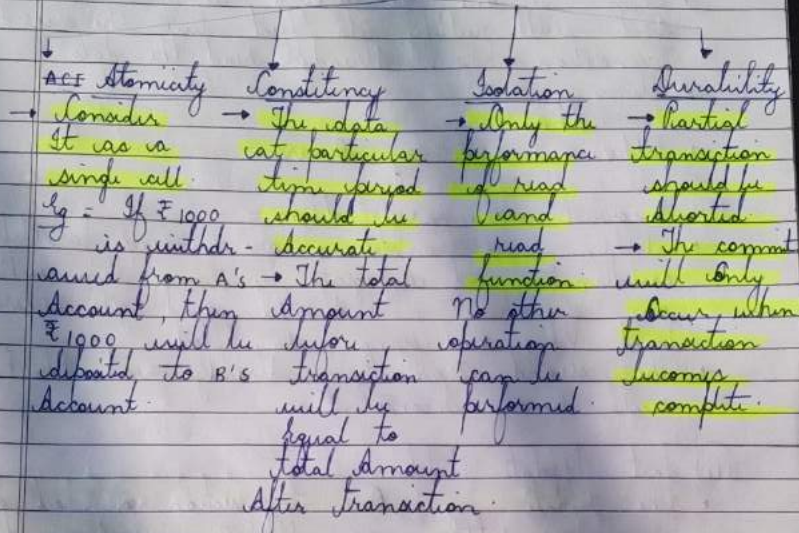 ACI Atomicity
→ Consider
It as a
single call.
Eg = If ₹1000
is withdr-
awed from A's
Account, then
₹1000 will be
deposited to B's
Account.
Constitency
→ The data
at particular
time period
should be
Accurate
→ The total
Amount
before
transaction
will be
Equal to
total Amount
After transaction.
Isolation
→ Only the
performance
of read
and
read
function.
No other
operation
can be
performed.
Durability
→ Partial
transaction
should be
Aborted
→ The commit
will Only
Occur when
transaction
becomes
complete.